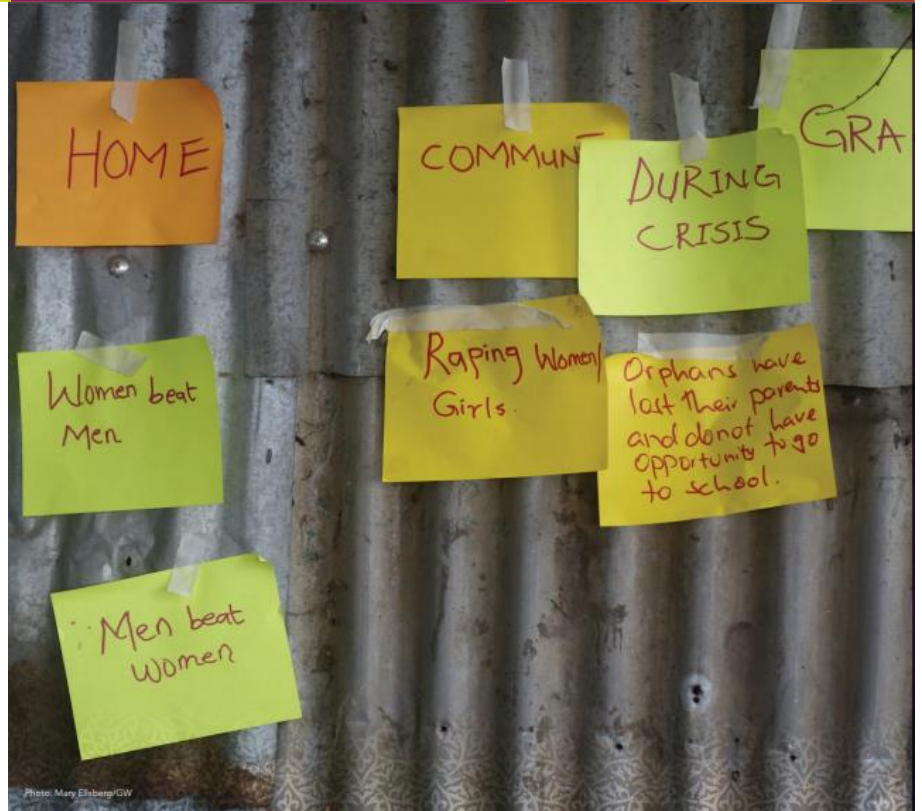 HOME
COMMUN
DURING
CRISIS
GRA
Women beat
Men
Raping Women/
Girls.
Orphans have
lost their parents
and donot have
opportunity to go
to school.
Men beat
women
Photo: Mary Ellsberg/GW